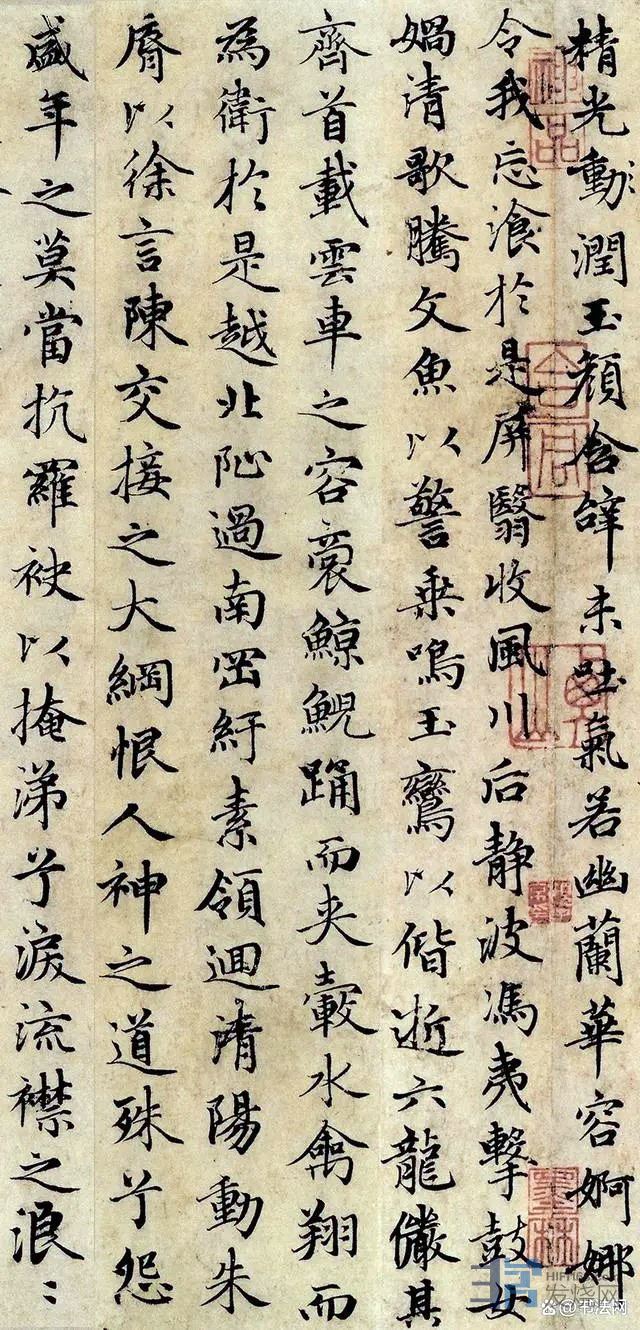 精光動潤玉顏含辝未吐氣若幽蘭華容婀娜
令我忘湌於是屏翳收風川后静波馮夷擊鼓女
媧清歌騰文魚以警乗鳴玉鸞以偕逝六龍儼其
齊首載雲車之容裔鯨鯢踊而夹轂水禽翔而
為衛於是越北沚過南岡紆素領迴清陽動朱
脣以徐言陳交接之大綱恨人神之道殊兮怨
盛年之莫當抗羅袂以掩涕兮淚流襟之浪〻
神品
墨林
发烧网
@书法网